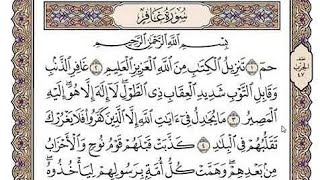 سُورَةُ غَافِرٍ
بِسْمِ ٱللَّهِ ٱلرَّحْمَٰنِ ٱلرَّحِيمِ
حمٓ ١ تَنزِيلُ ٱلْكِتَٰبِ مِنَ ٱللَّهِ ٱلْعَزِيزِ ٱلْعَلِيمِ ٢ غَافِرِ ٱلذَّنۢبِ
وَقَابِلِ ٱلتَّوْبِ شَدِيدِ ٱلْعِقَابِ ذِي ٱلطَّوْلِ لَآ إِلَٰهَ إِلَّا هُوَ إِلَيْهِ
ٱلْمَصِيرُ ٣ مَا يُجَٰدِلُ فِىٓ ءَايَٰتِ ٱللَّهِ إِلَّا ٱلَّذِينَ كَفَرُوا۟ فَلَا يَغْرُرْكَ
تَقَلُّبُهُمْ فِى ٱلْبِلَٰدِ ٤ كَذَّبَتْ قَبْلَهُمْ قَوْمُ نُوحٍ وَٱلْأَحْزَابُ
مِنۢ بَعْدِهِمْ وَهَمَّتْ كُلُّ أُمَّةٍۭ بِرَسُولِهِمْ لِيَأْخُذُوهُ